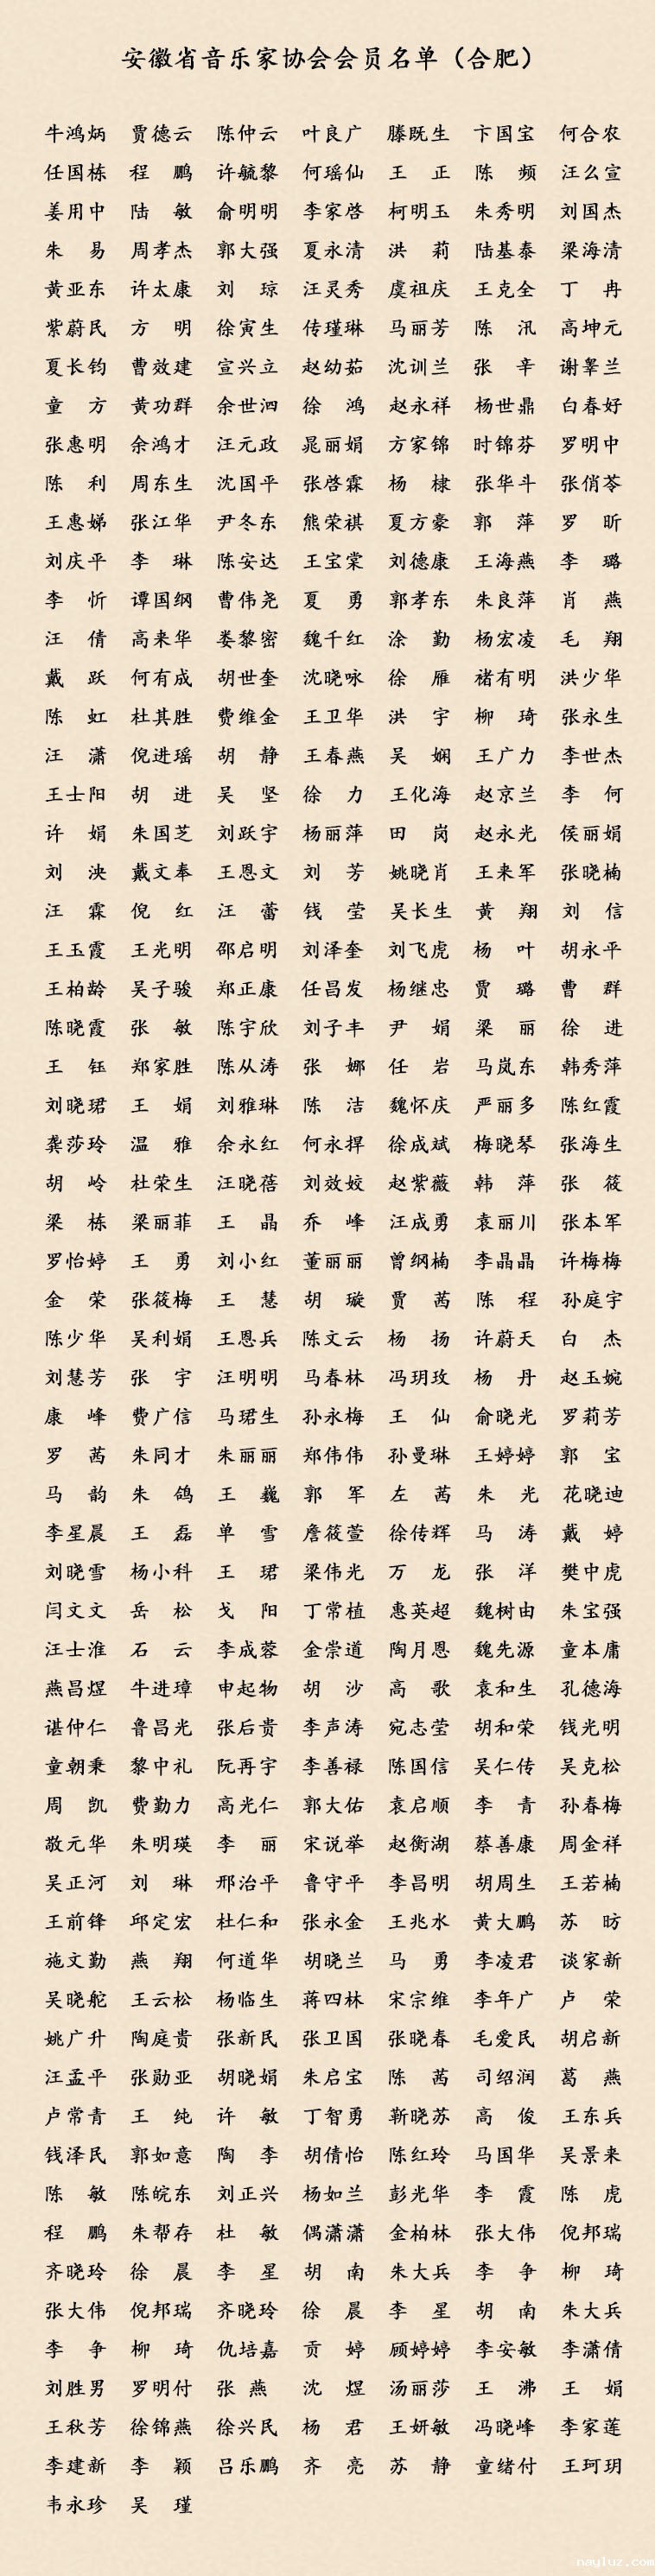 安徽省音乐家协会会员名单（合肥）
牛鸿炳 贾德云 陈仲云 叶良广 滕既生 卞国宝 何合农
任国栋 程 鹏 许毓黎 何瑶仙 王 正 陈 频 汪么宣
姜用中 陆 敏 俞明明 李家啓 柯明玉 朱秀明 刘国杰
朱 易 周孝杰 郭大强 夏永清 洪 莉 陆基泰 梁海清
黄亚东 许太康 刘 琼 汪灵秀 虞祖庆 王克全 丁 冉
紫蔚民 方 明 徐寅生 传瑾琳 马丽芳 陈 汛 高坤元
夏长钧 曹效建 宣兴立 赵幼茹 沈训兰 张 辛 谢睾兰
童 方 黄功群 余世泗 徐 鸿 赵永祥 杨世鼎 白春好
张惠明 余鸿才 汪元政 晁丽娟 方家锦 时锦芬 罗明中
陈 利 周东生 沈国平 张啓霖 杨 棣 张华斗 张俏苓
王惠娣 张江华 尹冬东 熊荣祺 夏方豪 郭 萍 罗 昕
刘庆平 李 琳 陈安达 王宝棠 刘德康 王海燕 李 璐
李 忻 谭国纲 曹伟尧 夏 勇 郭孝东 朱良萍 肖 燕
汪 倩 高来华 娄黎密 魏千红 涂 勤 杨宏凌 毛 翔
戴 跃 何有成 胡世奎 沈晓咏 徐 雁 褚有明 洪少华
陈 虹 杜其胜 费维金 王卫华 洪 宇 柳 琦 张永生
汪 潇 倪进瑶 胡 静 王春燕 吴 娴 王广力 李世杰
王士阳 胡 进 吴 坚 徐 力 王化海 赵京兰 李 何
许 娟 朱国芝 刘跃宇 杨丽萍 田 岗 赵永光 侯丽娟
刘 泱 戴文奉 王恩文 刘 芳 姚晓肖 王来军 张晓楠
汪 霖 倪 红 汪 蕾 钱 莹 吴长生 黄 翔 刘 信
王玉霞 王光明 邵启明 刘泽奎 刘飞虎 杨 叶 胡永平
王柏龄 吴子骏 郑正康 任昌发 杨继忠 贾 璐 曹 群
陈晓霞 张 敏 陈宇欣 刘子丰 尹 娟 梁 丽 徐 进
王 钰 郑家胜 陈从涛 张 娜 任 岩 马岚东 韩秀萍
刘晓珺 王 娟 刘雅琳 陈 洁 魏怀庆 严丽多 陈红霞
龚莎玲 温 雅 余永红 何永捍 徐成斌 梅晓琴 张海生
胡 岭 杜荣生 汪晓蓓 刘效姣 赵紫薇 韩 萍 张 筱
梁 栋 梁丽菲 王 晶 乔 峰 汪成勇 袁丽川 张本军
罗怡婷 王 勇 刘小红 董丽丽 曾纲楠 李晶晶 许梅梅
金 荣 张筱梅 王 慧 胡 璇 贾 茜 陈 程 孙庭宇
陈少华 吴利娟 王恩兵 陈文云 杨 扬 许蔚天 白 杰
刘慧芳 张 宇 汪明明 马春林 冯玥玫 杨 丹 赵玉婉
康 峰 费广信 马珺生 孙永梅 王 仙 俞晓光 罗莉芳
罗 茜 朱同才 朱丽丽 郑伟伟 孙曼琳 王婷婷 郭 宝
马 韵 朱 鸽 王 巍 郭 军 左 茜 朱 光 花晓迪
李星晨 王 磊 单 雪 詹筱萱 徐传辉 马 涛 戴 婷
刘晓雪 杨小科 王 珺 梁伟光 万 龙 张 洋 樊中虎
闫文文 岳 松 戈 阳 丁常植 惠英超 魏树由 朱宝强
汪士淮 石 云 李成蓉 金崇道 陶月恩 魏先源 童本庸
燕昌煜 牛进璋 申起物 胡 沙 高 歌 袁和生 孔德海
谌仲仁 鲁昌光 张后贵 李声涛 宛志莹 胡和荣 钱光明
童朝秉 黎中礼 阮再宇 李善禄 陈国信 吴仁传 吴克松
周 凯 费勤力 高光仁 郭大佑 袁启顺 李 青 孙春梅
敬元华 朱明瑛 李 丽 宋说举 赵衡湖 蔡善康 周金祥
吴正河 刘 琳 邢治平 鲁守平 李昌明 胡周生 王若楠
王前锋 邱定宏 杜仁和 张永金 王兆水 黄大鹏 苏 昉
施文勤 燕 翔 何道华 胡晓兰 马 勇 李凌君 谈家新
吴晓舵 王云松 杨临生 蒋四林 宋宗维 李年广 卢 荣
姚广升 陶庭贵 张新民 张卫国 张晓春 毛爱民 胡启新
汪孟平 张勋亚 胡晓娟 朱启宝 陈 茜 司绍润 葛 燕
卢常青 王 纯 许 敏 丁智勇 靳晓苏 高 俊 王东兵
钱泽民 郭如意 陶 李 胡倩怡 陈红玲 马国华 吴景来
陈 敏 陈皖东 刘正兴 杨如兰 彭光华 李 霞 陈 虎
程 鹏 朱帮存 杜 敏 偶潇潇 金柏林 张大伟 倪邦瑞
齐晓玲 徐 晨 李 星 胡 南 朱大兵 李 争 柳 琦
张大伟 倪邦瑞 齐晓玲 徐 晨 李 星 胡 南 朱大兵
李 争 柳 琦 仇培嘉 贡 婷 顾婷婷 李安敏 李潇倩
刘胜男 罗明付 张 燕 沈 煜 汤丽莎 王 沸 王 娟
王秋芳 徐锦燕 徐兴民 杨 君 王妍敏 冯晓峰 李家莲
李建新 李 颖 吕乐鹏 齐 亮 苏 静 童绪付 王珂玥
韦永珍 吴 瑾
nayluz.com